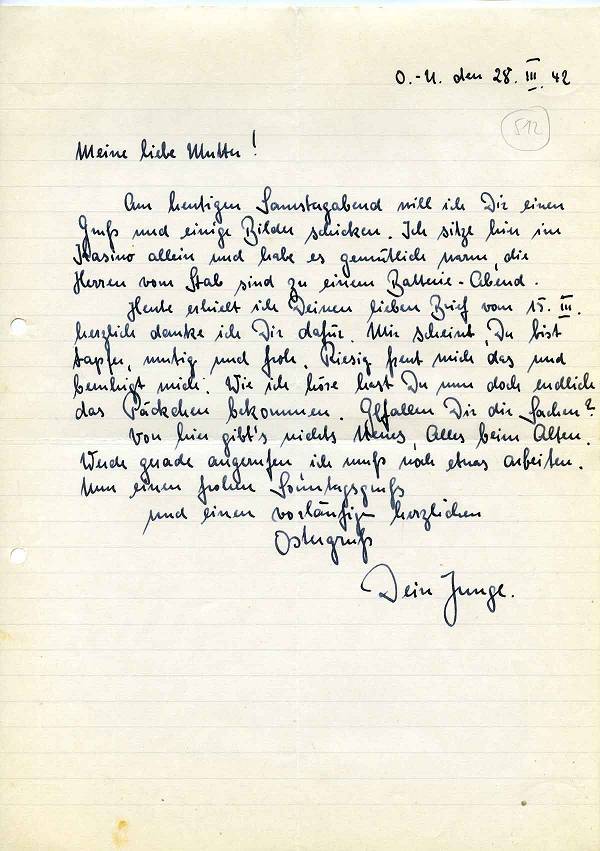 O.-U. den 28. III. 42
512
Meine liebe Mutter!
Am heutigen Samstagabend will ich Dir einen
Gruß und einige Bilder schicken. Ich sitze hier im
Kasino allein und habe es gemütlich warm, die
Herren vom Stab sind zu einem Batterie-Abend.
Heute erhielt ich Deinen lieben Brief vom 15. III.
herzlich danke ich Dir dafür. Mir scheint, Du bist
tapfer, mutig und froh. Riesig freut mich das und
beruhigt mich. Wie ich höre hast Du nun doch endlich
das Päckchen bekommen. Gefallen Dir die Sachen?
Von hier gibt's nichts Neues, Alles beim Alten.
Werde gerade angerufen, ich muß noch etwas arbeiten.
Nun einen frohen Sonntagsgruß
und einen vorläufig herzlichen
Ostergruß
Dein Junge.